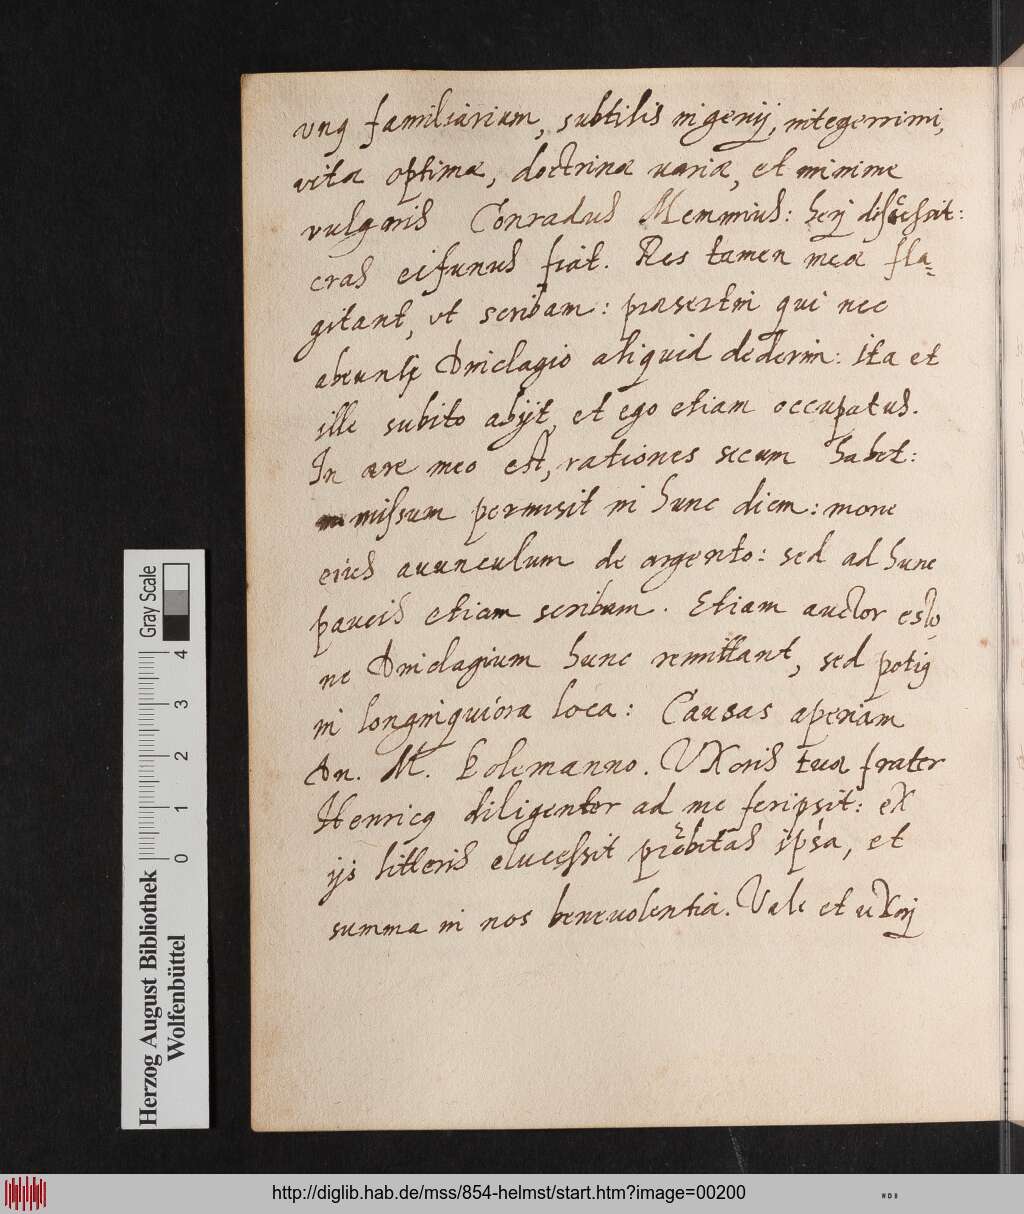 vnꝯ familiarium, subtilis ingenij, integerrimi,
vitæ optimæ, doctrinæ uariæ, et minime
vulgaris Conradus Memmius: herj discessit:
cras eifunus fiat. Res tamen meæ fla-
gitant, vt scribam: præsertim qui nec
abeunti Driclagio aliquid dederim: ita et
ille subito abijt, et ego etiam occupatus.
In ære meo est, rationes secum habet:
missum permisit in hunc diem: mone
eius auunculum de argento: sed ad hunc
paucis etiam scribam. Etiam auctor esto,
ne Driclagium hunc remittant, sed potiꝯ
in longinquiora loca: Causas aperiam
Dn. M. Bolemanno. Uxoris tuæ frater
Henricꝯ diligenter ad me scripsit: ex
ijs litteris eluxessit probitas ipsa, et
summa in nos beneuolentia. Vale et uxorj
Herzog August Bibliothek
Wolfenbüttel
Gray Scale
0 1 2 3 4
http://diglib.hab.de/mss/854-helmst/start.htm?image=00200